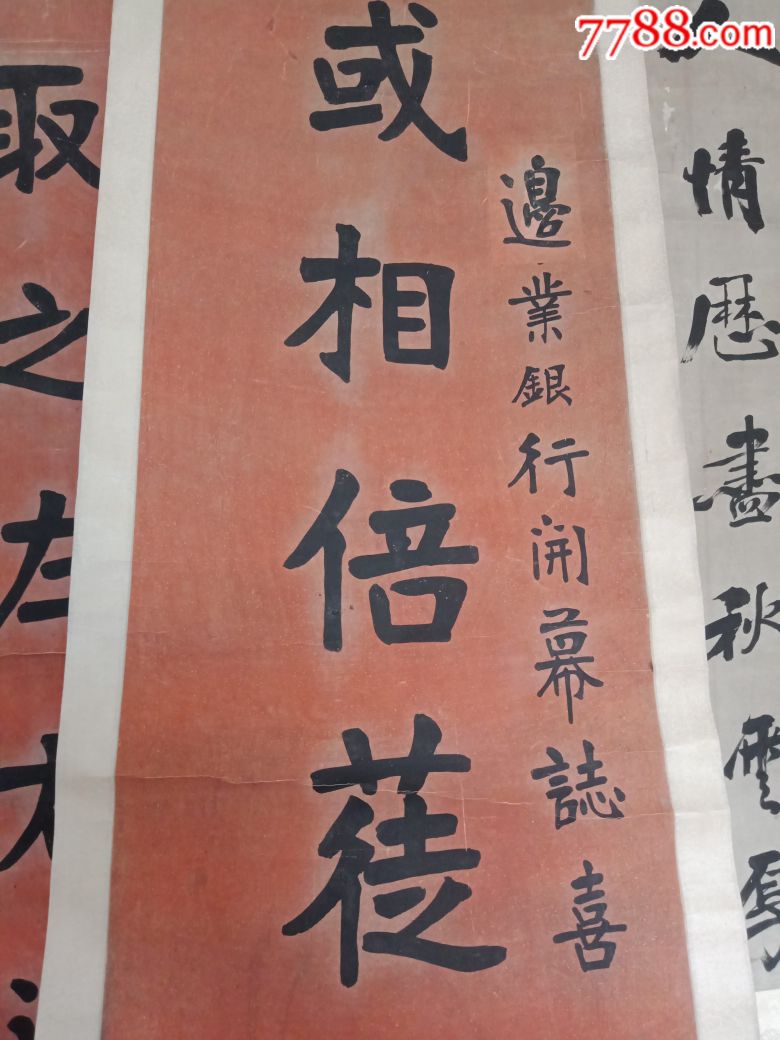 7788.com
情歷盡秋雲厚
邊業銀行開幕誌喜
或相倍蓰
取之左